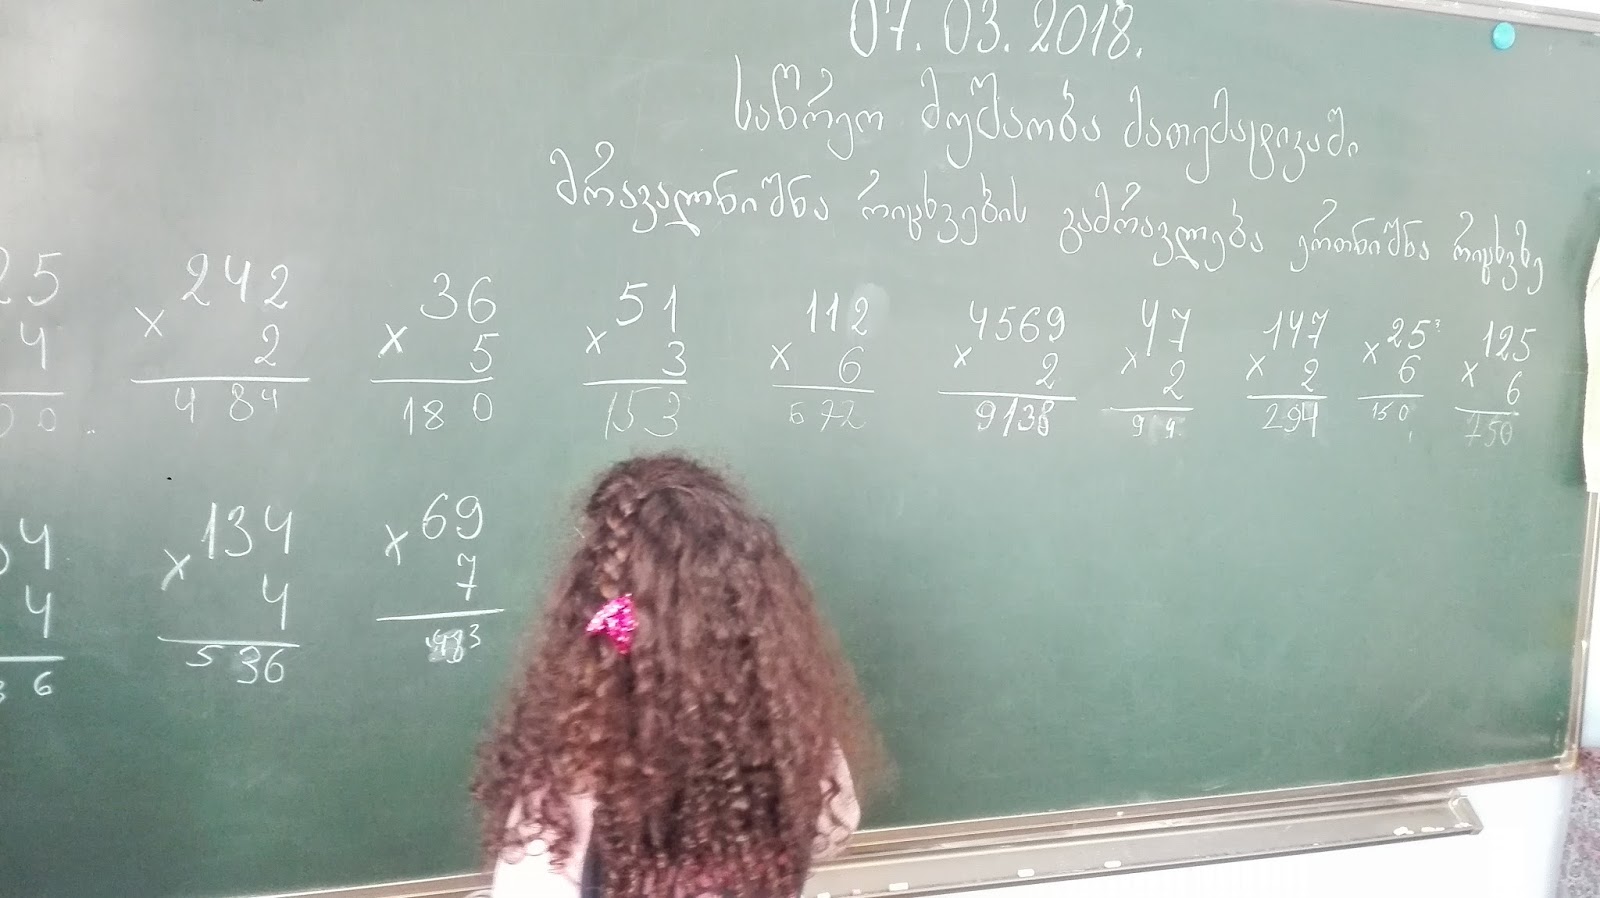 07.03.2018.
საწრეო მუშაობა მათემატიკაში
მრავალნიშნა რიცხვების გამრავლება ერთნიშნა რიცხვზე
25 242 36 51 112 4569 47 147 25³ 125
4 × 2 × 5 × 3 × 6 × 2 × 2 × 2 × 6 × 6
00 484 180 153 672 9138 94 294 150 750
4 × 134 × 69
4 4 7
36 536 483